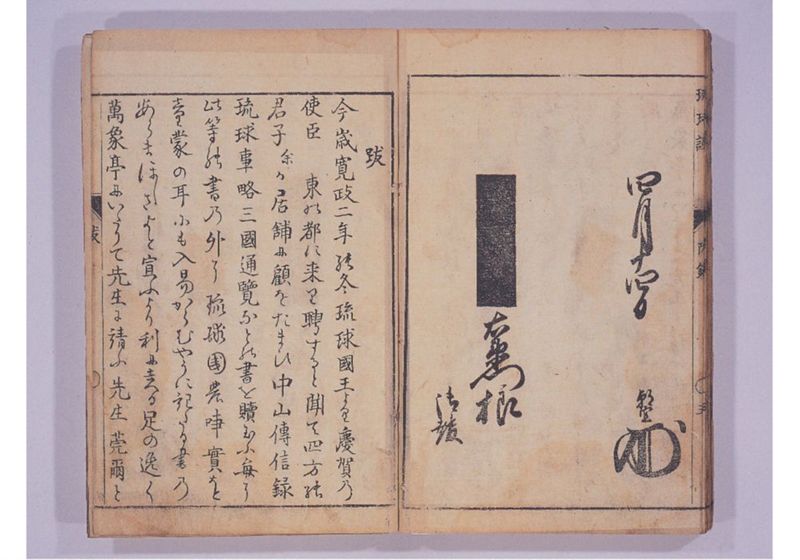 琉球談
四月十四日
整
跋
今歳寛政二年の冬琉球國王より慶賀乃
使臣 東の都に来り聘すると聞て四方の
君子余が居舗に顧をたまひ中山傳信録
琉球事略三國通覧などの書を購ふ毎に
此等の書乃外に琉球國の事實を
童蒙の耳にも入易からむやうに記たる書乃
あらまほしさよと宣ふより利に走る足の逸く
萬象亭にいたりて先生に請ふ先生莞爾と
跋